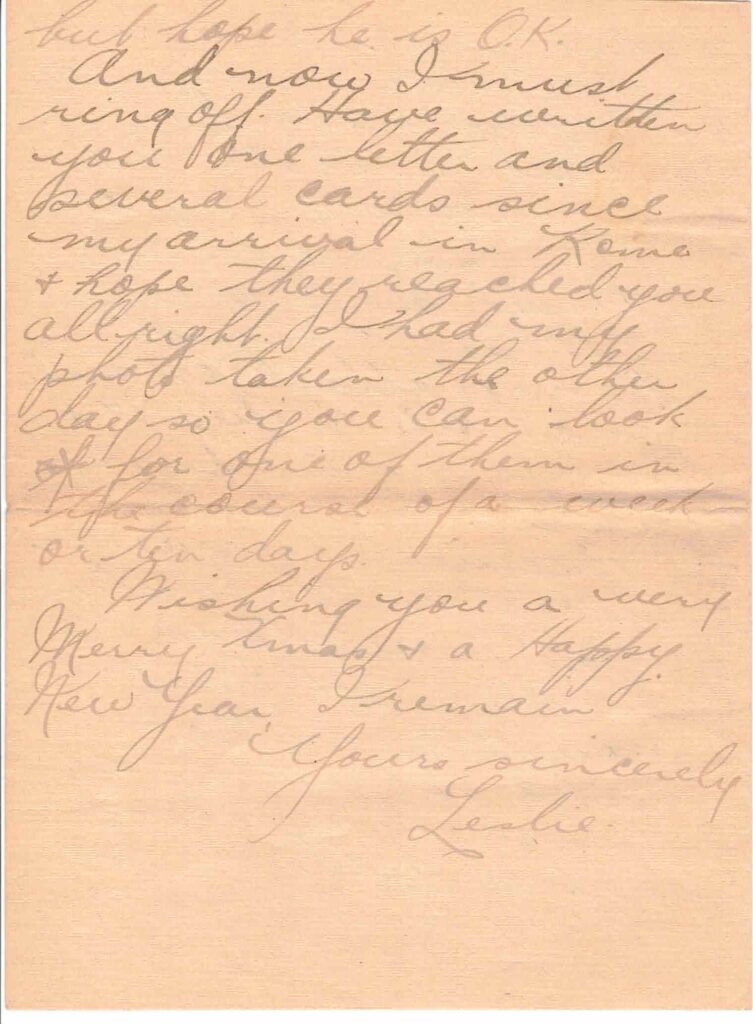 but hope he is O.K.
And now I must
ring off. Have written
you one letter and
several cards since
my arrival in Rome
& hope they reached you
all right. I had my
photo taken the other
day so you can look
for one of them in
the course of a week
or ten days.
Wishing you a very
Merry Xmas & a Happy
New Year, I remain
Yours sincerely
Leslie.